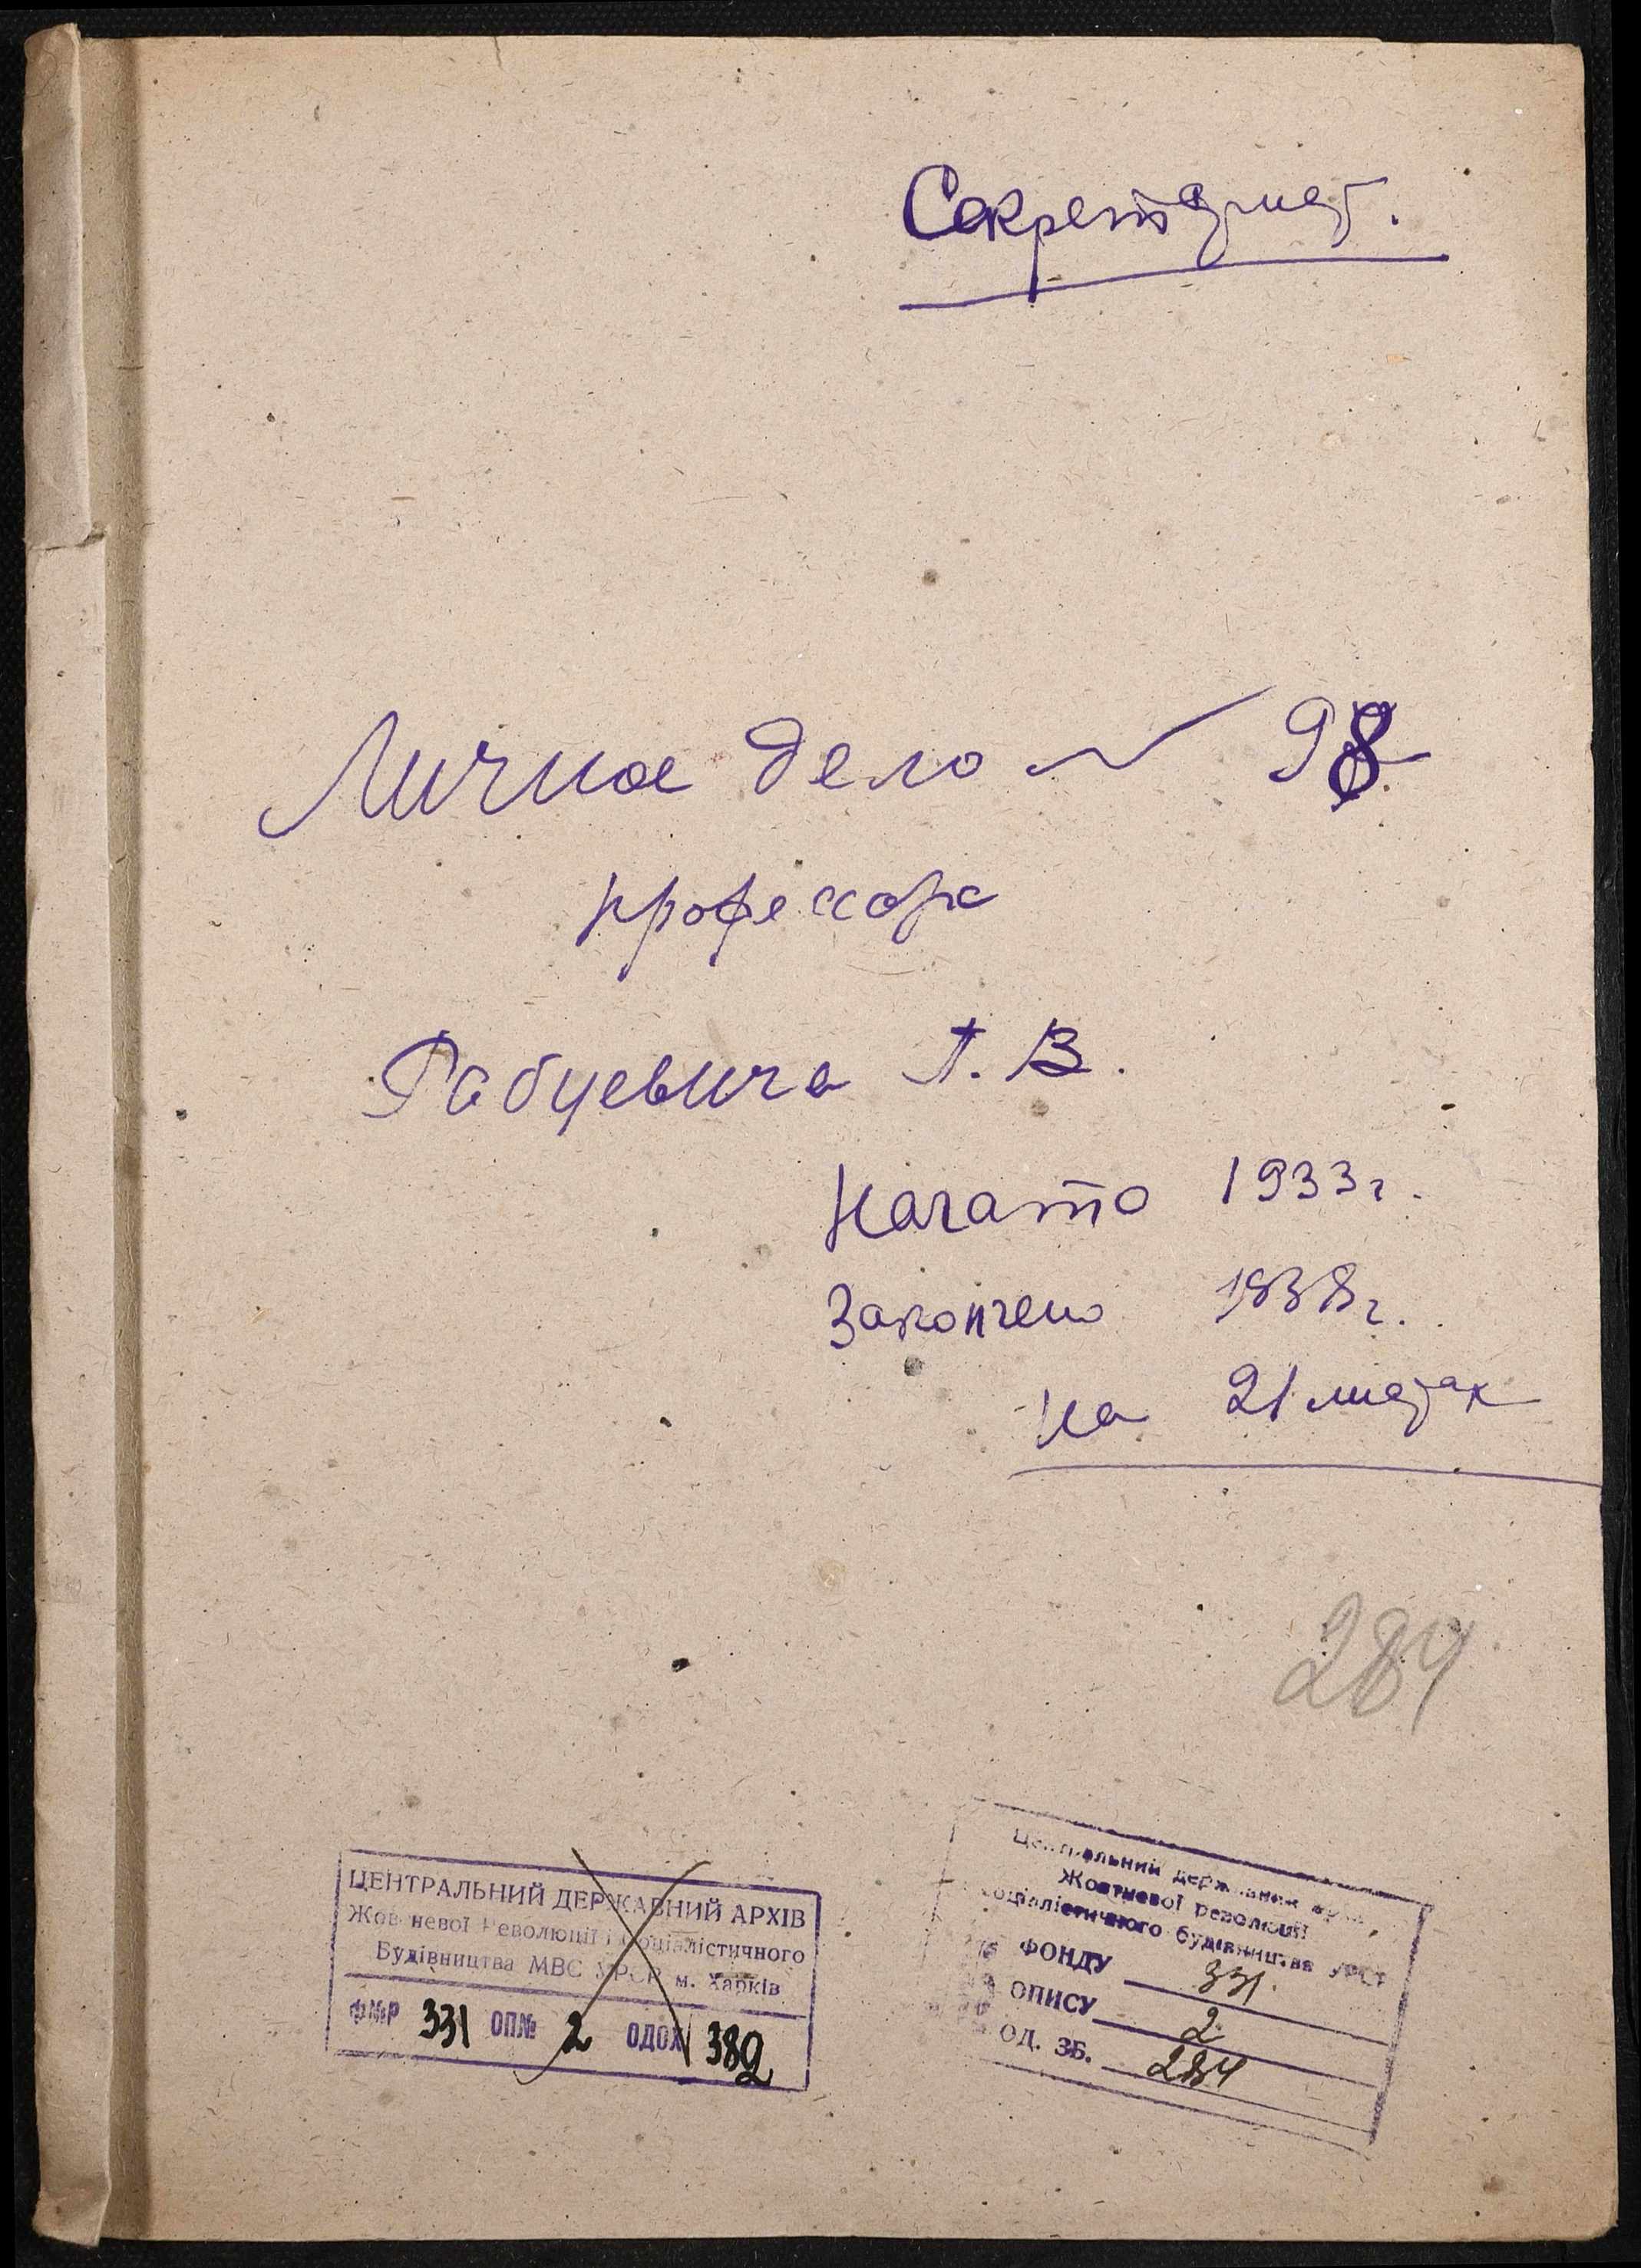 Секретариат.
Личное дело № 98
профессора
Рабцевича В.
Начато 1933 г.
Закончено 1938 г.
На 21 листах
284
ЦЕНТРАЛЬНИЙ ДЕРЖАВНИЙ АРХІВ
Жовтневої Революції і Соціалістичного
Будівництва МВС УРСР м. Харків
Ф№Р 331 ОП№ 2 ОДОХ 382
Центральний державний архів
Жовтневої революції
соціалістичного будівництва УРСР
№ ФОНДУ 331.
№ ОПИСУ 2
№ ОД. ЗБ. 284